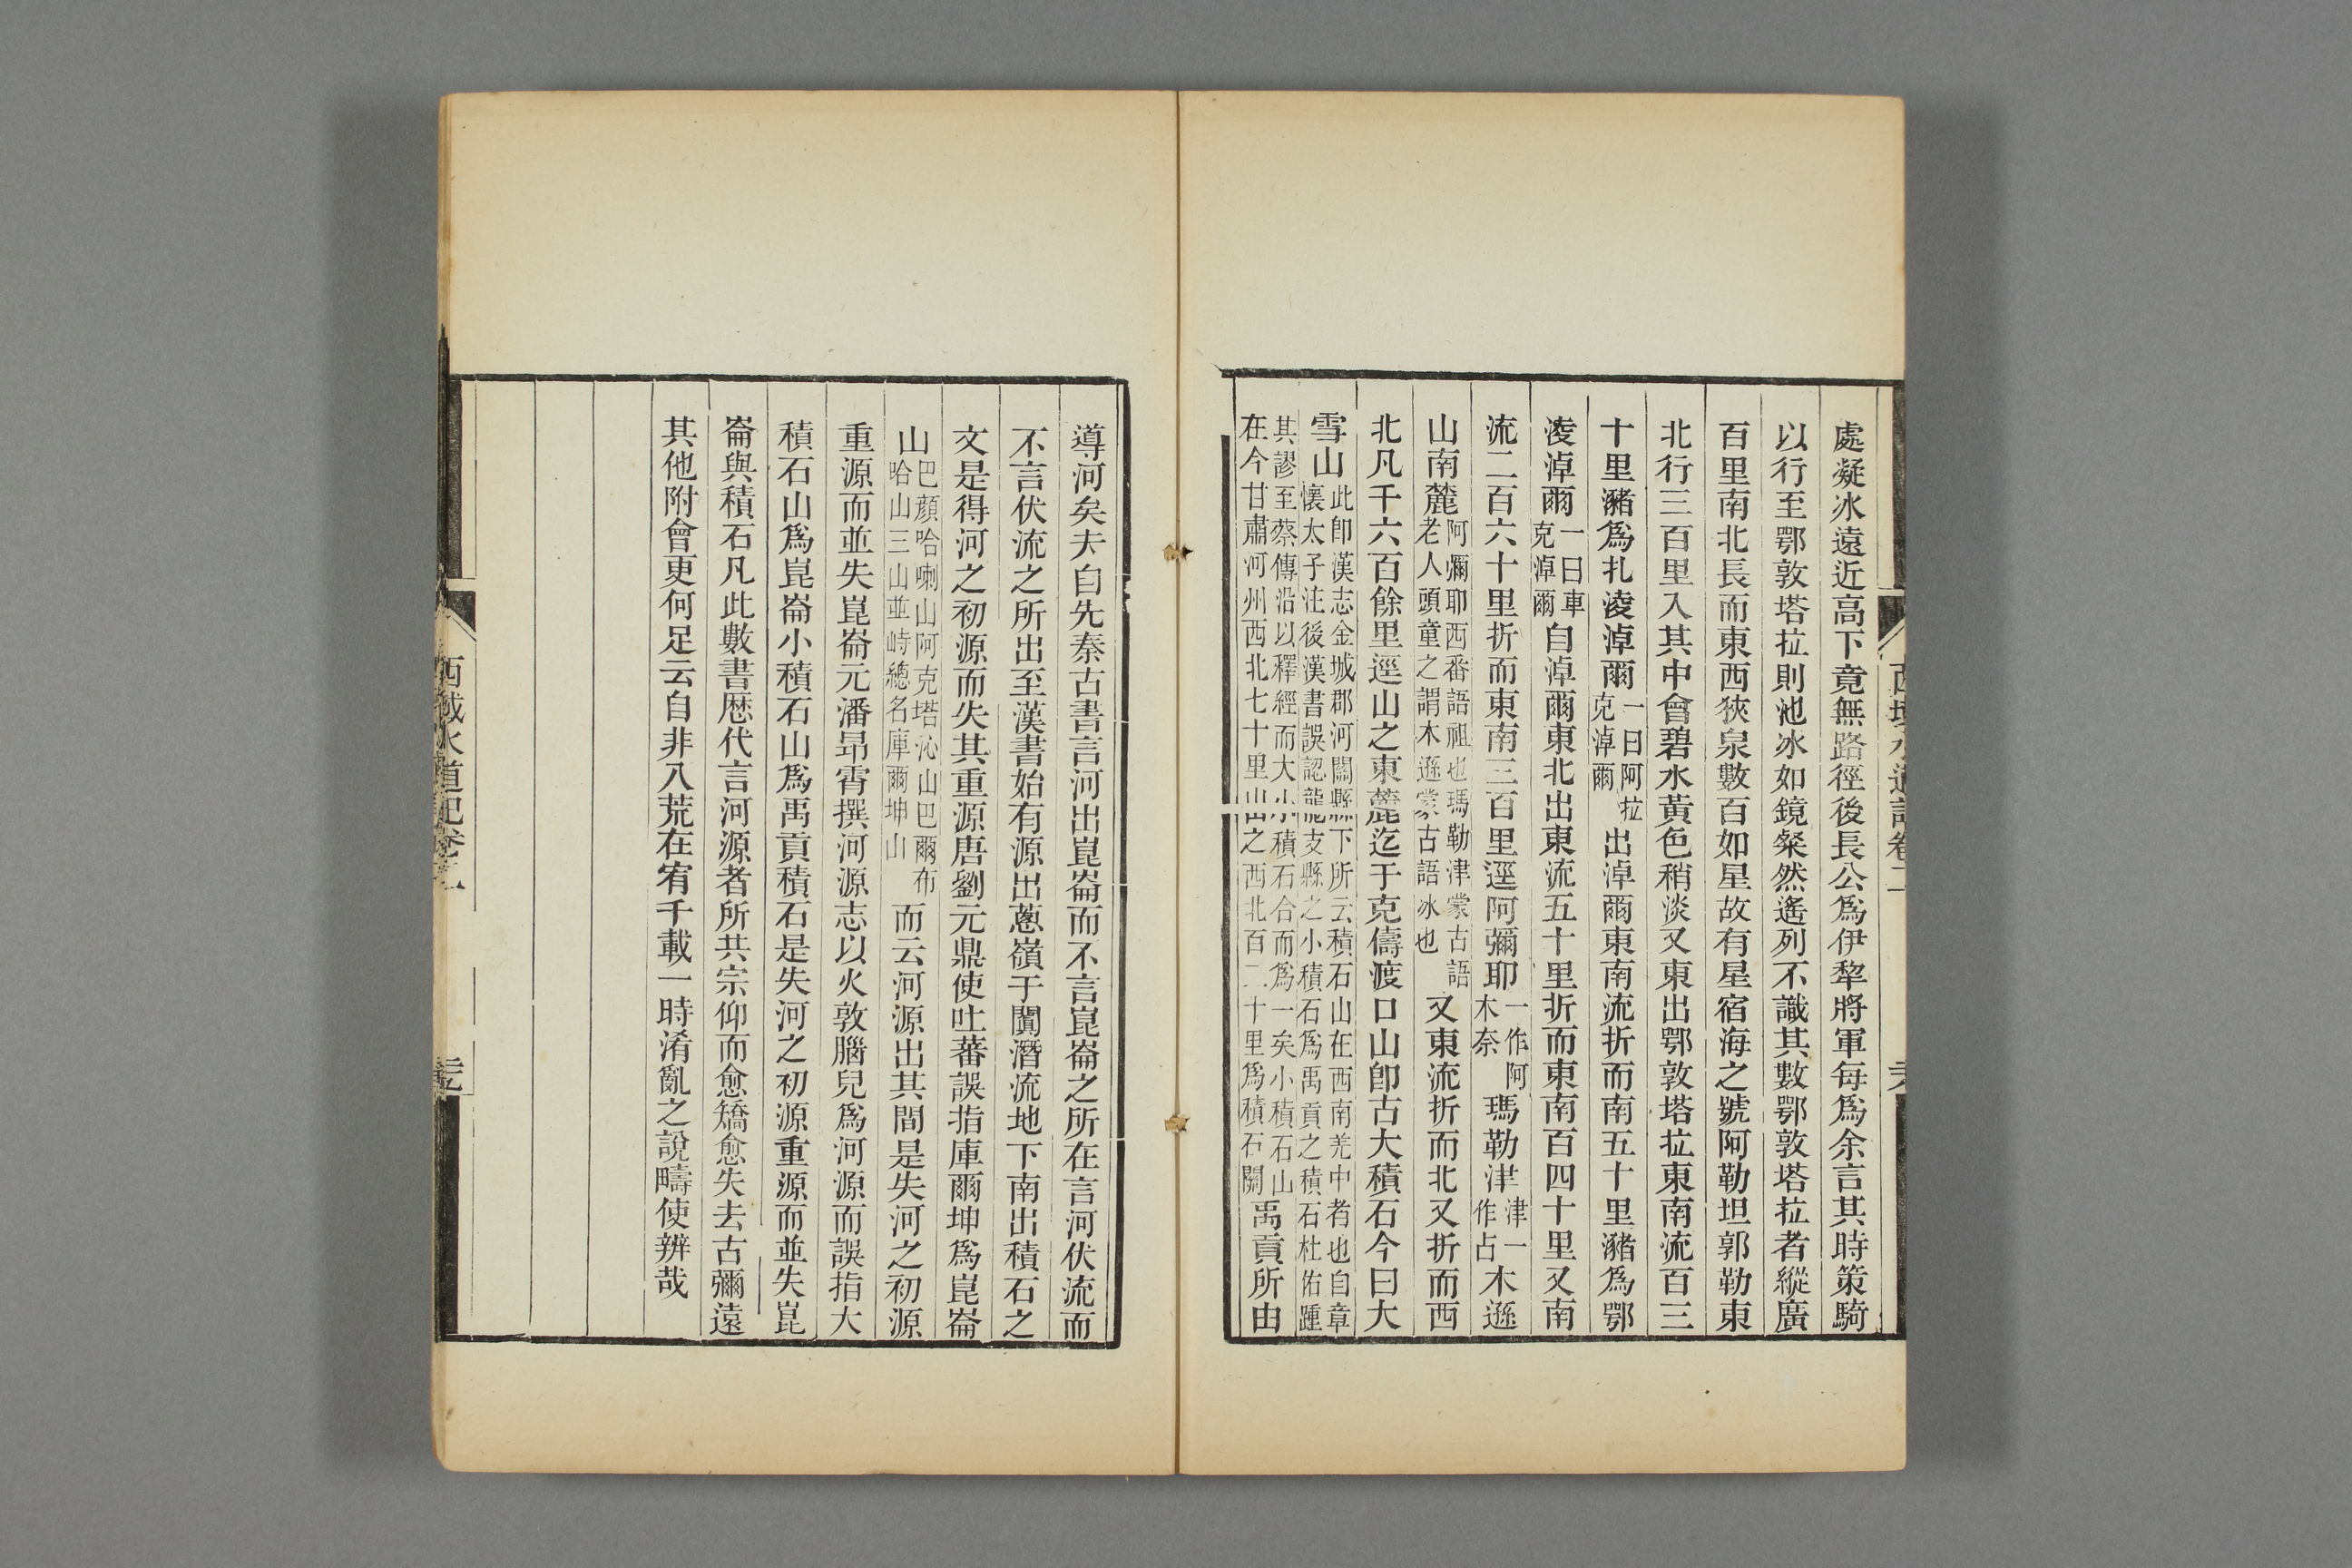 處凝冰遠近高下竟無路徑後長公爲伊犂將軍每爲余言其時策騎
以行至鄂敦塔拉則池冰如鏡粲然遙列不讖其數鄂敦塔拉者縱廣
百里南北長而東西狹泉數百如星故有星宿海之號阿勒坦郭勒東
北行三百里入其中會碧水黃色稍淡又東出鄂敦塔拉東南流百三
十里瀦爲扎淩淖爾一曰阿拉克淖爾出淖爾東南流折而南五十里瀦爲鄂
凌淖爾一曰車克淖爾自淖爾東北出東流五十里折而東南百四十里又南
流二百六十里折而東南三百里逕阿彌耶一作阿木奈瑪勒津津一作占木遜
山南麓阿彌耶西番語祖也瑪勒津蒙古語老人頭童之謂木遜蒙古語冰也又東流折而北又折而西
北凡千六百餘里逕山之東麓迄于克儔渡口山卽古大積石今曰大
雪山此卽漢志金城郡河關縣下所云積石山在西南羌中者也自章懷太子注後漢書誤認龍支縣之小積石爲禹貢之積石杜佑踵
其謬至蔡傳沿以釋經而大小積石合而爲一矣小積石山在今甘肅河州西北七十里山之西北百二十里爲積石關禹貢所由
導河矣夫自先秦古書言河出崑崙而不言崑崙之所在言河伏流而
不言伏流之所出至漢書始有源出蔥嶺于闐潛流地下南出積石之
文是得河之初源而失其重源唐劉元鼎使吐蕃誤指庫爾坤爲崑崙
山巴顔哈喇山阿克塔沁山巴爾布哈山三山並峙總名庫爾坤山而云河源出其間是失河之初源
重源而並失崑崙元潘昂霄撰河源志以火敦腦兒爲河源而誤指大
積石山爲崑崙小積石山爲禹貢積石是失河之初源重源而並失崑
崙與積石凡此數書歷代言河源者所共宗仰而愈矯愈失去古彌遠
其他附會更何足云自非八荒在宥千載一時淆亂之說疇使辨哉
西域水道記卷二